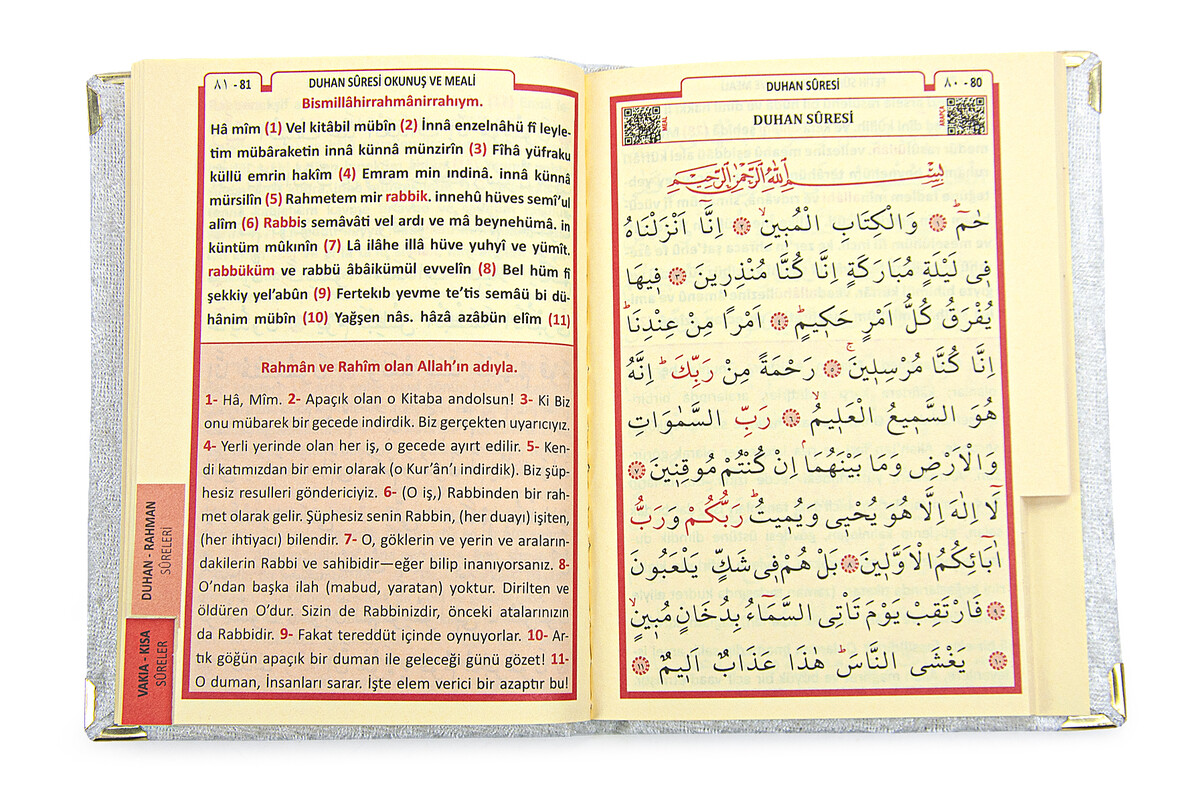 ٨٠ - 80
DUHAN SÛRESİ
DUHAN SÛRESİ
MEAL
ARAPÇA
بِسْمِ اللّٰهِ الرَّحْمٰنِ الرَّحٖيمِ
حٰمٓۜ ﴿١﴾ وَالْكِتَابِ الْمُبٖينِۙ ﴿٢﴾ اِنَّٓا اَنْزَلْنَاهُ
فٖي لَيْلَةٍ مُبَارَكَةٍ اِنَّا كُنَّا مُنْذِرٖينَ ﴿٣﴾ فٖيهَا
يُفْرَقُ كُلُّ اَمْرٍ حَكٖيمٍۜ ﴿٤﴾ اَمْرًا مِنْ عِنْدِنَاۜ
اِنَّا كُنَّا مُرْسِلٖينَۚ ﴿٥﴾ رَحْمَةً مِنْ رَبِّكَۜ اِنَّهُ
هُوَ السَّمٖيعُ الْعَلٖيمُۙ ﴿٦﴾ رَبِّ السَّمٰوَاتِ
وَالْاَرْضِ وَمَا بَيْنَهُمَاۢ اِنْ كُنْتُمْ مُوقِنٖينَ ﴿٧﴾
لَٓا اِلٰهَ اِلَّا هُوَ يُحْيٖي وَيُمٖيتُۜ رَبُّكُمْ وَرَبُّ
اٰبَٓائِكُمُ الْاَوَّلٖينَ ﴿٨﴾ بَلْ هُمْ فٖي شَكٍّ يَلْعَبُونَ
﴿٩﴾ فَارْتَقِبْ يَوْمَ تَأْتِي السَّمَٓاءُ بِدُخَانٍ مُبٖينٍۙ
﴿١٠﴾ يَغْشَى النَّاسَۜ هٰذَا عَذَابٌ اَلٖيمٌ ﴿١١﴾
٨١ - 81
DUHAN SÛRESİ OKUNUŞ VE MEALİ
Bismillâhirrahmânirrahıym.
Hâ mîm (1) Vel kitâbil mübîn (2) İnnâ enzelnâhü fî leyle-
tim mübâraketin innâ künnâ münzirîn (3) Fîhâ yüfraku
küllü emrin hakîm (4) Emram min ındinâ. innâ künnâ
mürsilîn (5) Rahmetem mir rabbik. innehû hüves semî’ul
alîm (6) Rabbis semâvâti vel ardı ve mâ beynehümâ. in
küntüm mûkınîn (7) Lâ ilâhe illâ hüve yuhyî ve yümît.
rabbüküm ve rabbü âbâikümül evvelîn (8) Bel hüm fî
şekkiy yel’abûn (9) Fertekıb yevme te’tis semâü bi dü-
hânim mübîn (10) Yağşen nâs. hâzâ azâbün elîm (11)
Rahmân ve Rahîm olan Allah’ın adıyla.
1- Hâ, Mîm. 2- Apaçık olan o Kitaba andolsun! 3- Ki Biz
onu mübarek bir gecede indirdik. Biz gerçekten uyarıcıyız.
4- Yerli yerinde olan her iş, o gecede ayırt edilir. 5- Ken-
di katımızdan bir emir olarak (o Kur’ân’ı indirdik). Biz şüp-
hesiz resulleri göndericiyiz. 6- (O iş,) Rabbinden bir rah-
met olarak gelir. Şüphesiz senin Rabbin, (her duayı) işiten,
(her ihtiyacı) bilendir. 7- O, göklerin ve yerin ve araların-
dakilerin Rabbi ve sahibidir—eğer bilip inanıyorsanız. 8-
O’ndan başka ilah (mabud, yaratan) yoktur. Dirilten ve
öldüren O’dur. Sizin de Rabbinizdir, önceki atalarınızın
da Rabbidir. 9- Fakat tereddüt içinde oynuyorlar. 10- Ar-
tık göğün apaçık bir duman ile geleceği günü gözet! 11-
O duman, İnsanları sarar. İşte elem verici bir azaptır bu!
DUHAN - RAHMAN
SÛRELERİ
VAKIA - KISA
SÛRELER